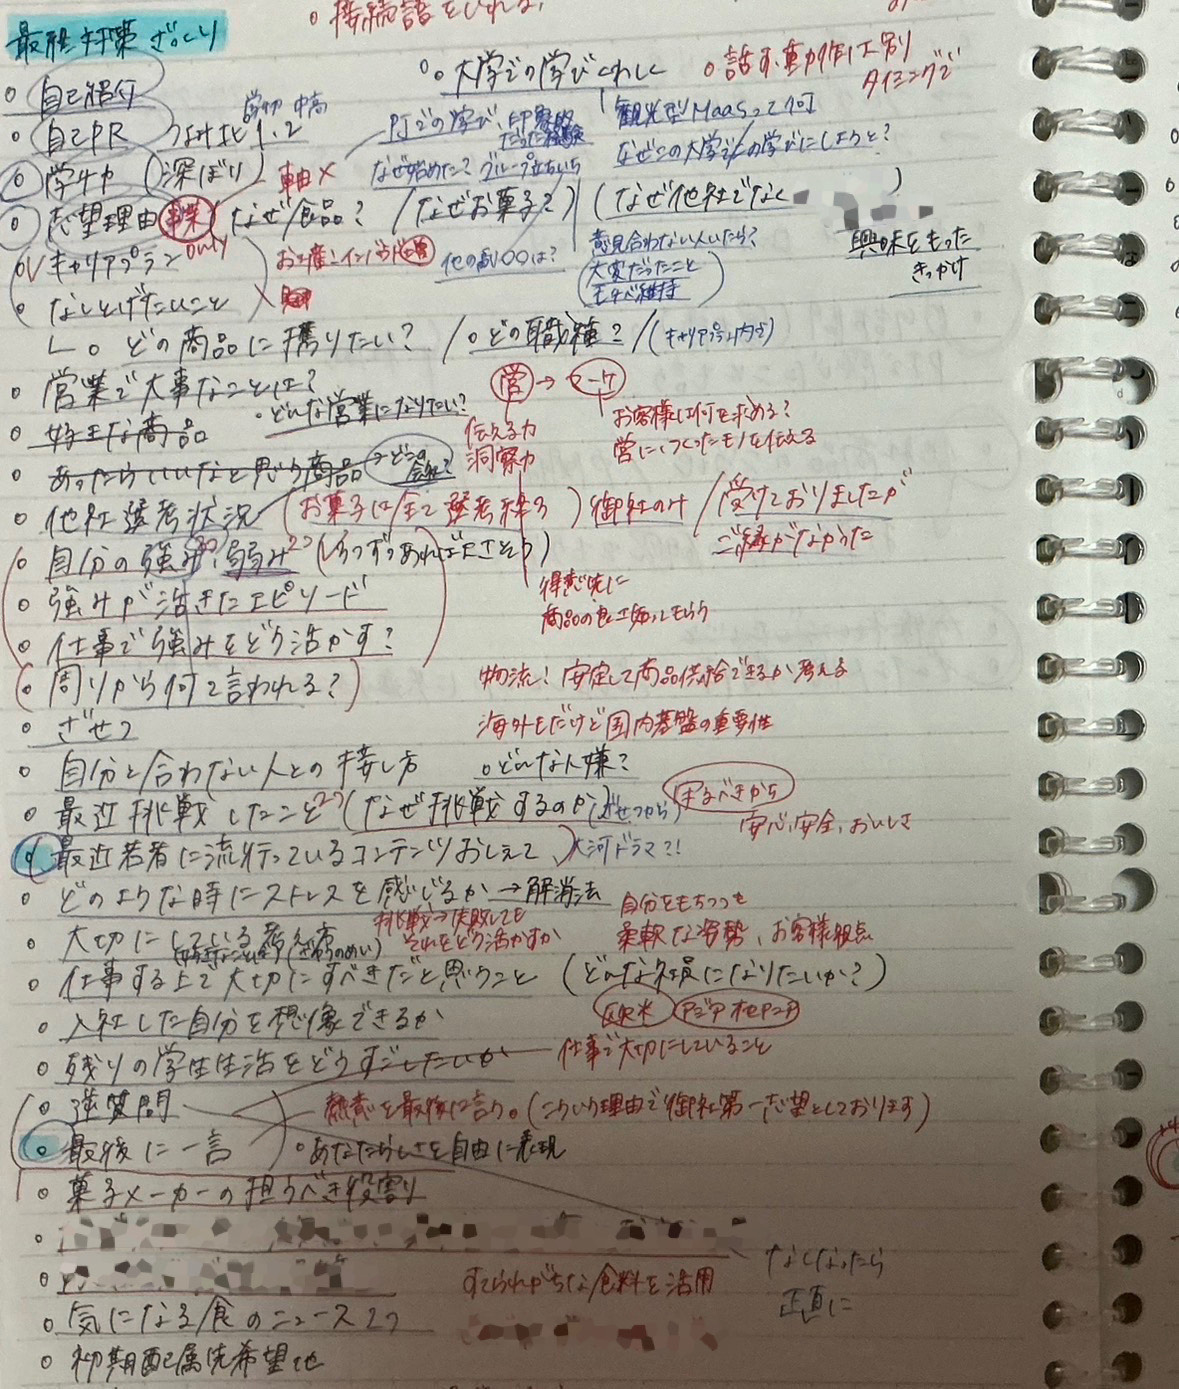 接続語をいれる、
最終対策ざっくり
○ 大学での学びくわしく
○ 話す、動作は別タイミングで
○ 自己紹介
学サ 中高
○ 自己PR つよみ 1、2
PJでの学び、印象的だった経験
観光型MaaSって何
○ 学チカ (深ぼり)
軸×
なぜ始めた? グループ立ちいち
なぜこの大学での学びにしようと?
○ 志望理由 事業 (なぜ食品? / なぜお菓子?) (なぜ他社でなく )
only
○ キャリアプラン
お土産、インバウンド
他の高いOOは?
意見合わない人いたら?
興味をもったきっかけ
○ なしとげたいこと
大変だったこと
モチベ維持
○ どの商品に携りたい? / ○ どの職種? / (キャリアプラン内で)
○ 営業で大事なことは?
・どんな営業になりたい?
営 → マーケ
○ 好きな商品
伝える力
洞察力
お客様は何を求める?
営につくったモノを伝える
○ あったらいいなと思う商品 → どこの会社?
○ 他社選考状況 (お菓子は全て選考終る) 御社のみ / 受けておりましたが
ご縁がなかった
○ 自分の強み、弱み (1つずつあれば大さそう)
○ 強みが活きたエピソード
得意先に
商品の良さ知ってもらう
○ 仕事で強みをどう活かす?
○ 周りから何て言われる?
物流! 安定して商品供給できるか考える
○ ざせつ
海外もだけど国内基盤の重要性
○ 自分と合わない人との接し方 ○ どんな人嫌?
○ 最近挑戦したこと2つ (なぜ挑戦するのか) (ざせつから)
するべきから
安心、安全、おいしさ
○ 最近若者に流行っているコンテンツおしえて、大河ドラマ?!
○ どのような時にストレスを感じるか → 解消法
挑戦→失敗しても
それをどう活かすか
自分をもちつつも
柔軟な姿勢、お客様視点
○ 大切にしている
○ 仕事する上で大切にすべきだと思うこと (どんな社員になりたいか?)
○ 入社した自分を想像できるか
欧米 アジア
○ 残りの学生生活をどうすごしたいか
仕事で大切にしていること
○ 逆質問
熱意を最後に言う。(こういう理由で御社第一志望としております)
○ 最後に一言
○ あなたらしさを自由に表現
○ 菓子メーカーの担うべき役割り
なくなったら
正直に
すてられがちな食料を活用
○ 気になる食のニュース2つ
○ 初期配属先希望地